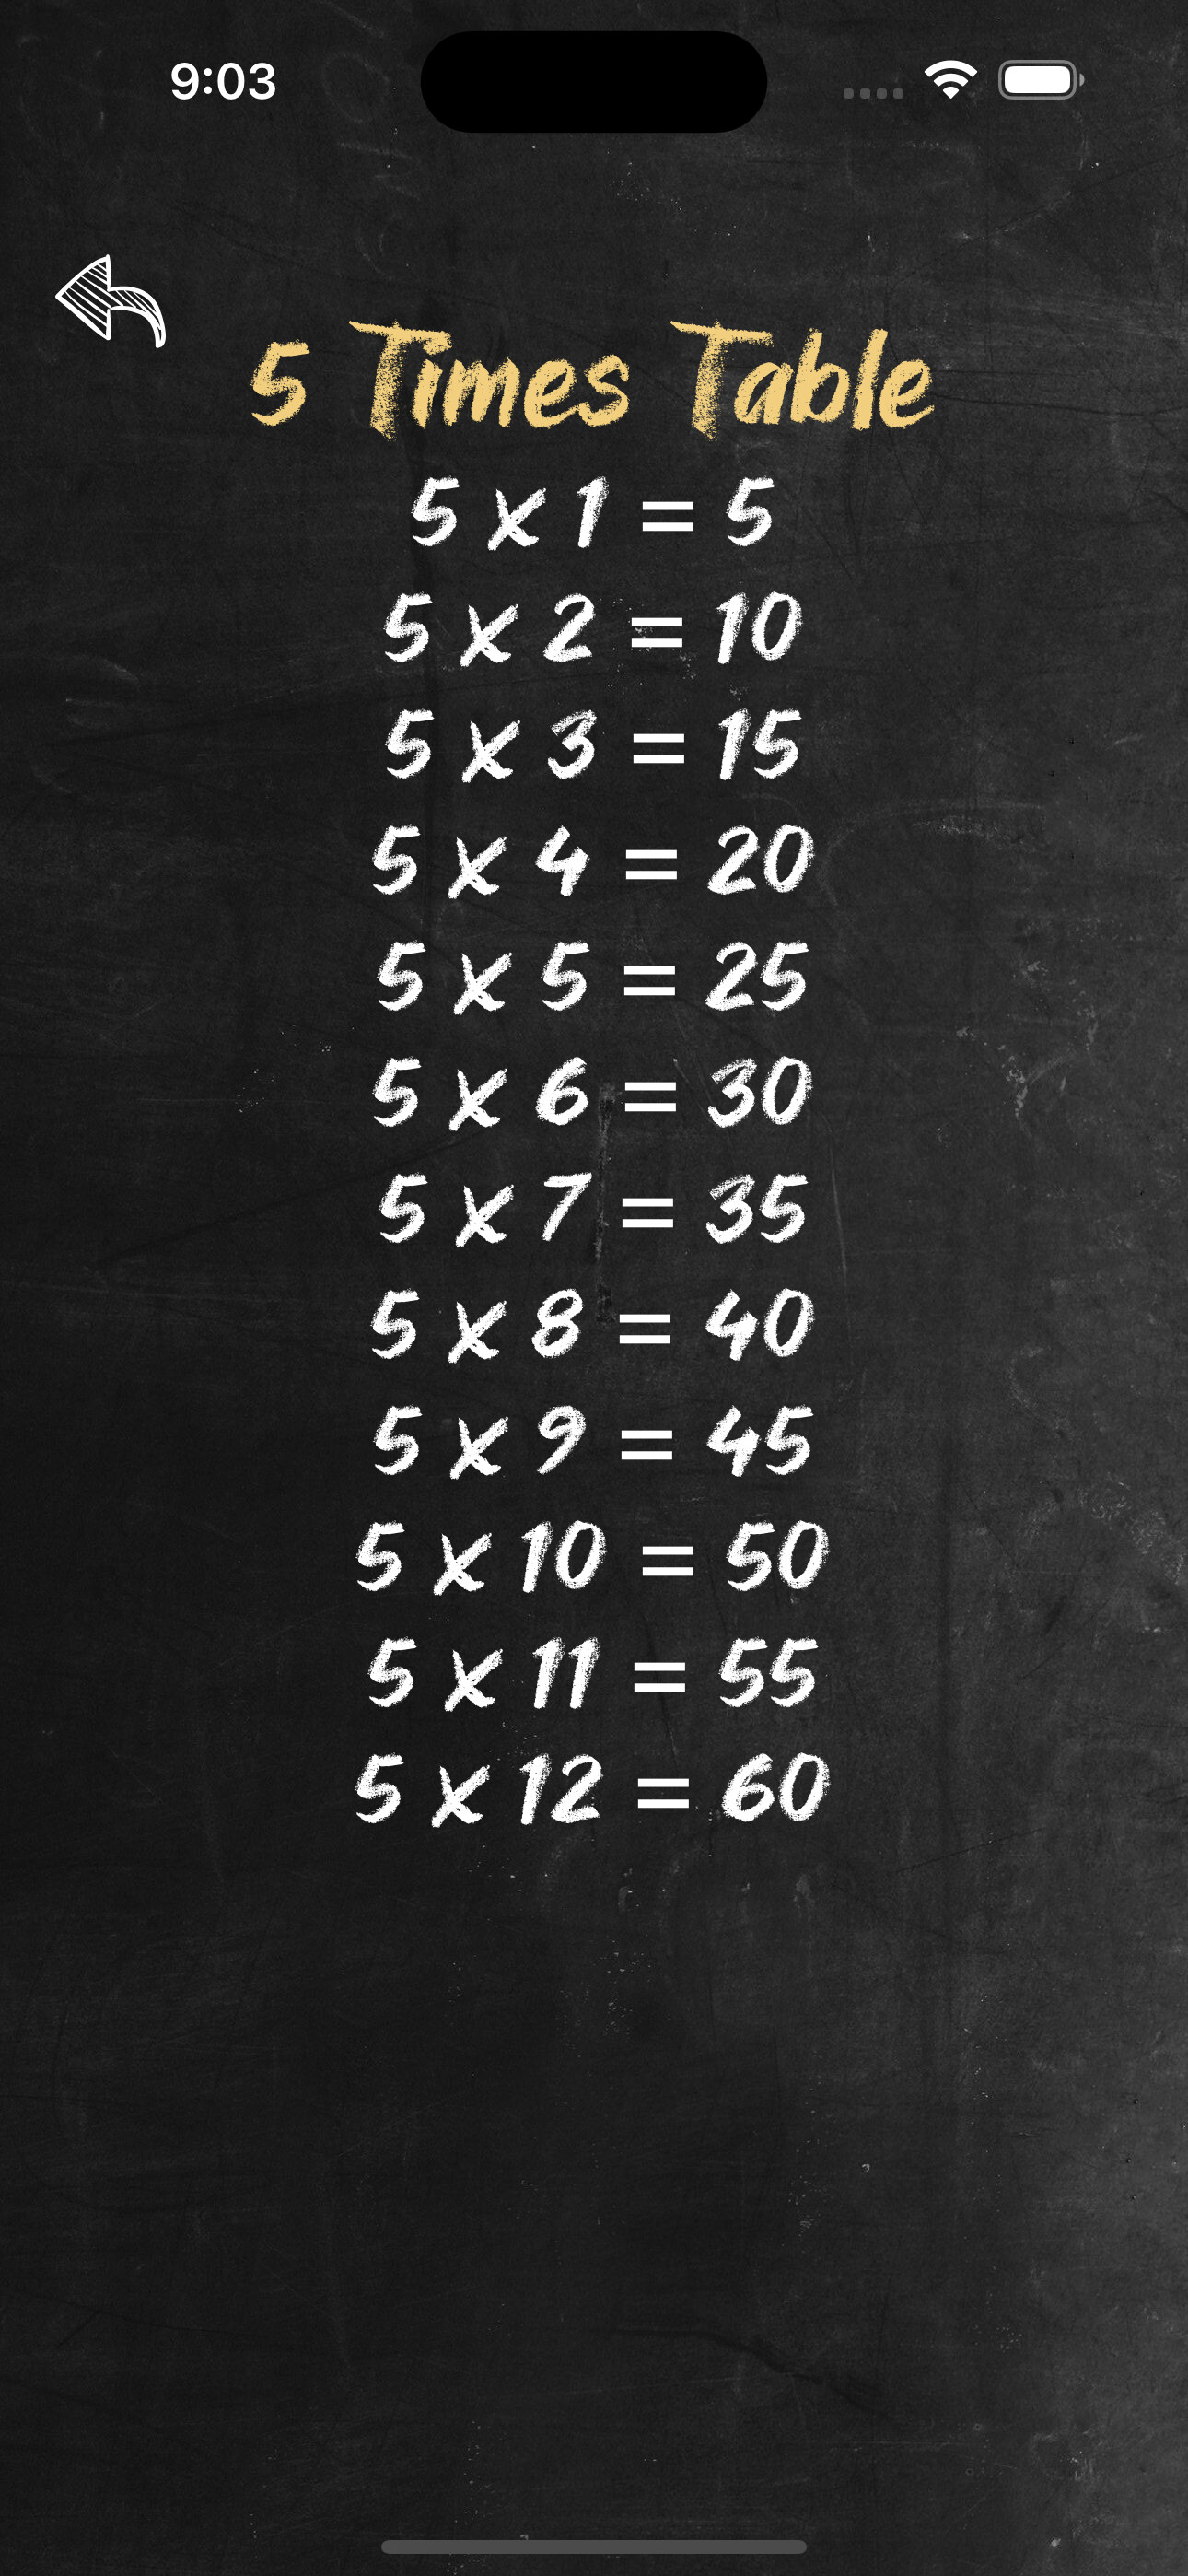 9:03
5 Times Table
5 x 1 = 5
5 x 2 = 10
5 x 3 = 15
5 x 4 = 20
5 x 5 = 25
5 x 6 = 30
5 x 7 = 35
5 x 8 = 40
5 x 9 = 45
5 x 10 = 50
5 x 11 = 55
5 x 12 = 60